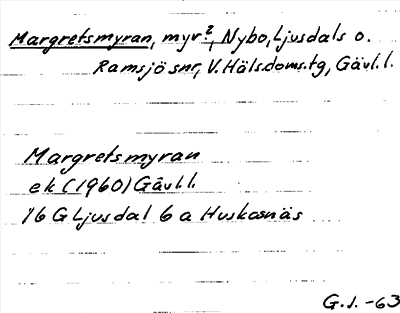 Margretsmyran, myr?, Nybo, Ljusdals o.
Ramsjö snr, V. Häls.doms.tg, Gävl.l.
Margretsmyran
ek (1960) Gävl.l.
16 G Ljusdal 6 a Huskasnäs
G.J. -63